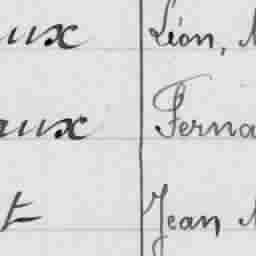 aux Léon,
aux Ferna
t Jean